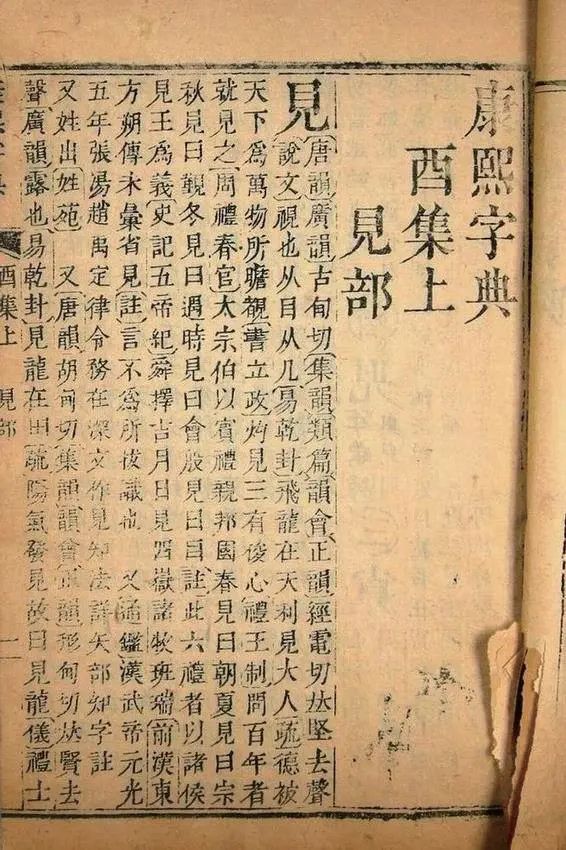 康熙字典
酉集上
見部
見 唐韻廣韻古甸切集韻類篇韻會正韻經電切𠀤堅去聲
說文視也从目从儿易乾卦飛龍在天利見大人疏德被
天下爲萬物所瞻覩書立政灼見三有俊心禮王制問百年者
就見之周禮春官大宗伯以賓禮親邦國春見曰朝夏見曰宗
秋見曰覲冬見曰遇時見曰會殷見曰同註此六禮者以諸侯
見王爲義史記五帝紀舜擇吉月日見四嶽諸牧班瑞前漢東
方朔傳未彙省見註言不爲所拔識也 又通鑑漢武帝元光
五年張湯趙禹定律令務在深文作見知法詳矢部知字註
又姓出姓苑 又唐韻胡甸切集韻韻會正韻形甸切𠀤賢去
聲廣韻露也易乾卦見龍在田疏陽氣發見故曰見龍儀禮士
酉集上 見部 一